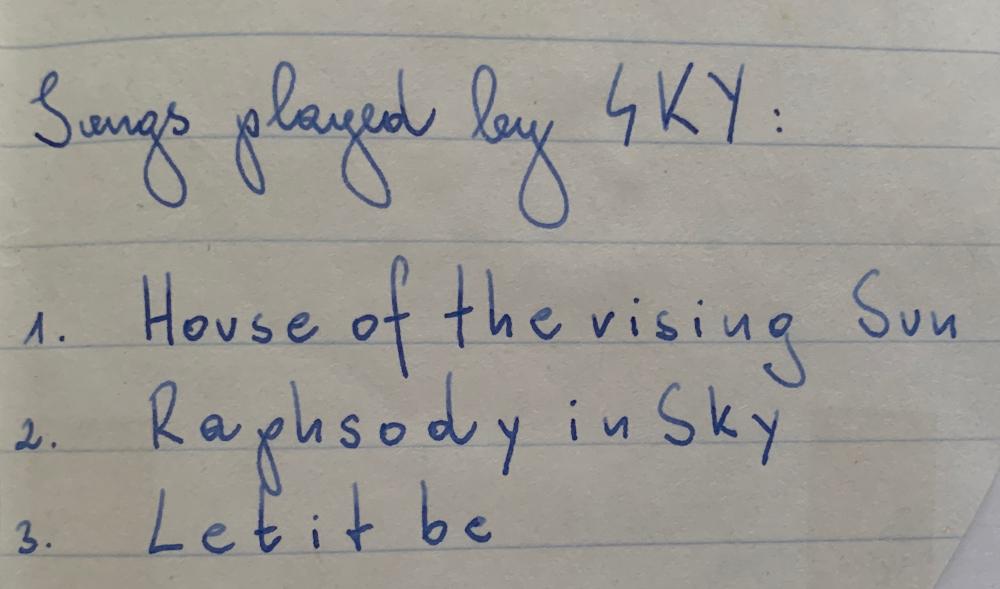 Songs played by SKY:
1. House of the rising Sun
2. Raphsody in Sky
3. Let it be